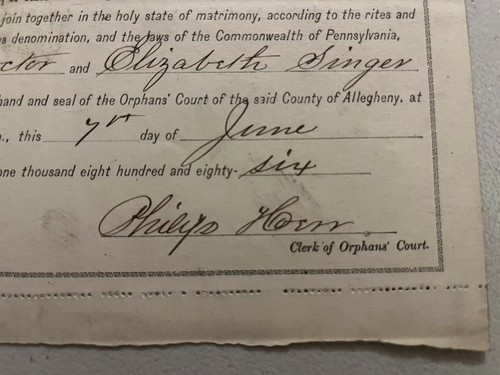 join together in the holy state of matrimony, according to the rites and
s denomination, and the laws of the Commonwealth of Pennsylvania,
ctor and Elizabeth Singer
hand and seal of the Orphans' Court of the said County of Allegheny, at
., this 7th day of June
one thousand eight hundred and eighty- six
Philip Hoerr
Clerk of Orphans' Court.